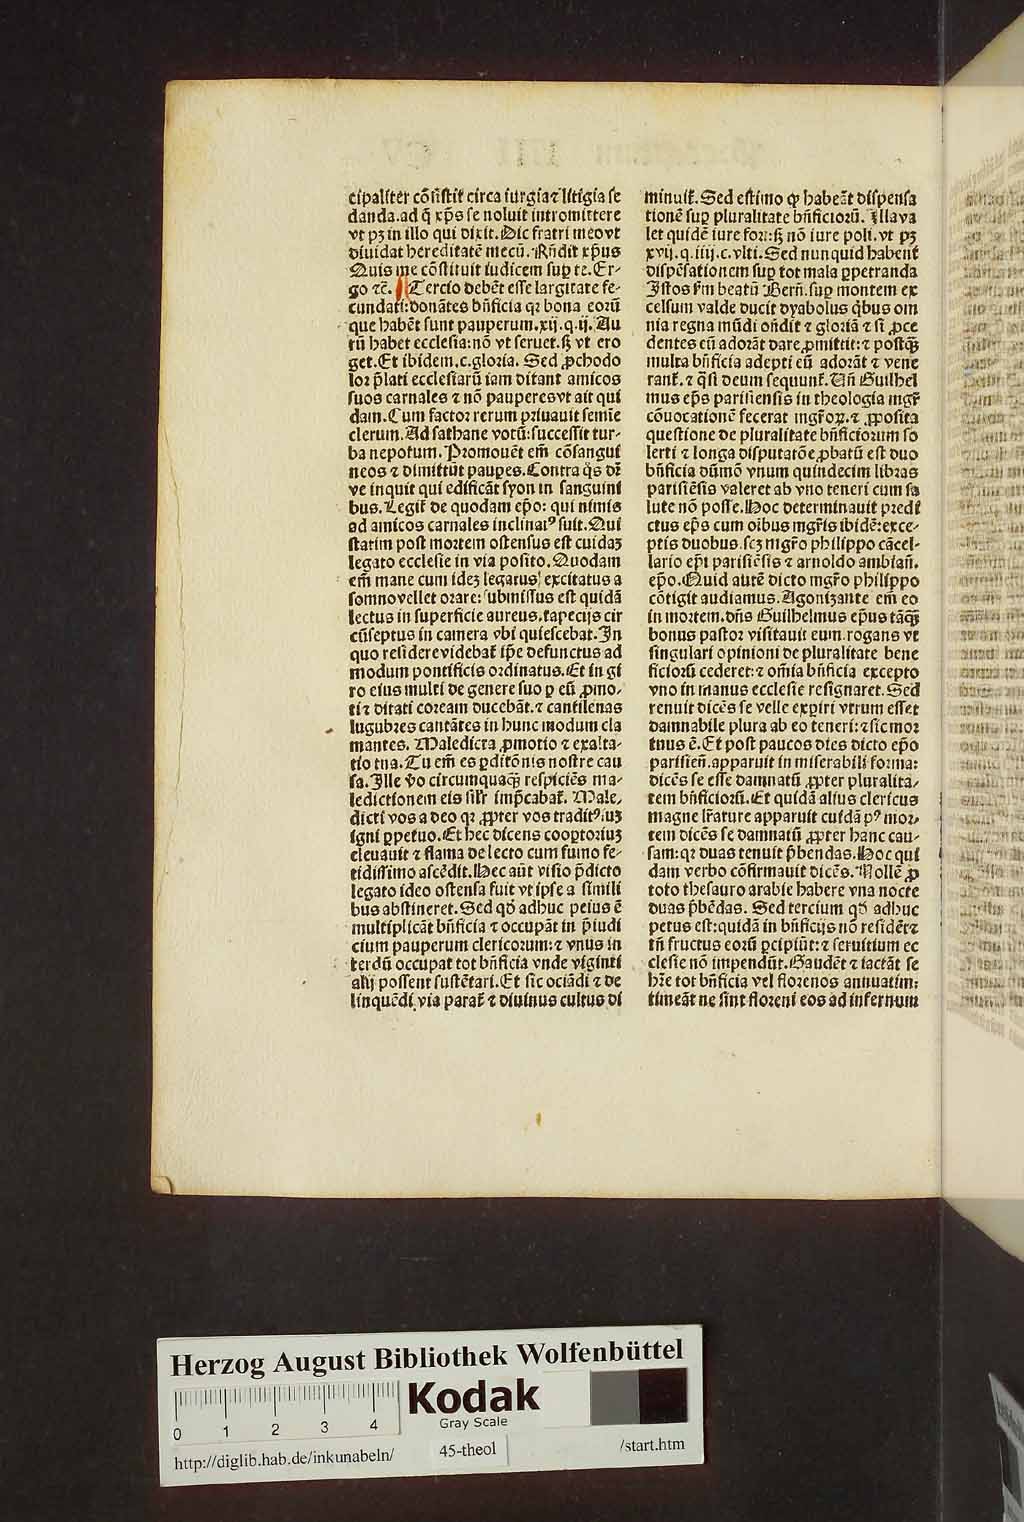 cipaliter cōsistit̄ circa iurgia ⁊ litigia se
danda. ad q̄ xp̄s se noluit intromittere
vt pꝫ in illo qui dixit. Dic fratri meo vt
diuidat hereditatē mecū. Rn̄dit xp̄us
Quis me cōstituit iudicem suꝑ te. Er-
go ⁊c̄. Tercio debēt esse largitate fe-
cundati: donātes bn̄ficia qr bona eorū
que habēt sunt pauperum. xij. q. ij. Au
rū habet ecclesia: nō vt seruet. sꝫ vt ero
get. Et ibidem. c. gloria. Sed ꝓchodo
lor p̄lati ecclesiarū iam ditant amicos
suos carnales ⁊ nō pauperes vt ait qui
dam. Cum factor rerum priuauit semīe
clerum. Ad sathane votū: successit tur-
ba nepotum. Promouēt em̄ cōsangui
neos ⁊ dimittūt pauꝑes. Contra q̄s dr̄
ve inquit qui edificāt syon in sanguini
bus. Legit̄ de quodam ep̄o: qui nimis
ad amicos carnales inclinatꝰ fuit. Qui
statim post mortem ostensus est cuidaꝫ
legato ecclesie in via posito. Quodam
em̄ mane cum ideꝫ legatus excitatus a
somno vellet orare: submissus est quidā
lectus in superficie aureus. tapecijs cir
cūseptus in camera vbi quiescebat. In
quo residere videbat̄ ip̄e defunctus ad
modum pontificis ordinatus. Et in gi
ro eius multi de genere suo ꝑ eū ꝓmo-
ti ⁊ ditati coream ducebāt. ⁊ cantilenas
lugubres cantātes in hunc modum cla
mantes. Maledicta ꝓmotio ⁊ exalta-
tio tua. Tu em̄ es ꝑditōnis nostre cau
sa. Ille v̄o circumquaqꝫ respiciēs ma-
ledictionem eis sil̄r imp̄cabat̄. Male-
dicti vos a deo qr ꝓpter vos traditꝰ suꝫ
igni ꝑpetuo. Et hec dicens cooptoriuꝫ
eleuauit ⁊ flama de lecto cum fumo fe-
tidissimo ascēdit. Hec aūt visio p̄dicto
legato ideo ostensa fuit vt ipse a simili
bus abstineret. Sed qd̄ adhuc peius ē
multiplicāt bn̄ficia ⁊ occupāt in p̄iudi
cium pauperum clericorum: ⁊ vnus in
terdū occupat tot bn̄ficia vnde viginti
alij possent sustētari. Et sic ociādi ⁊ de
linquēdi. via parat̄ ⁊ diuinus cultus di
minuit̄. Sed estimo ꝙ habeāt dispensa
tionē suꝑ pluralitate bn̄ficiorū. Illa va
let quidē iure fori: sꝫ nō iure poli. vt pꝫ
xvij. q. iiij. c. vlti. Sed nunquid habent̄
dispēsationem suꝑ tot mala ꝑpetranda
Istos s̄m beatū Bern̄. suꝑ montem ex
celsum valde ducit dyabolus q̄bus om
nia regna mūdi on̄dit ⁊ gloriā ⁊ si ꝓce
dentes eū adorāt dare ꝓmittit: ⁊ postqꝫ
multa bn̄ficia adepti eū adorāt ⁊ vene
rant̄. ⁊ q̄si deum sequunt̄. Vn̄ Guilhel
mus ep̄s parisiensis in theologia mgr̄
cōuocationē fecerat mgr̄oꝝ. ⁊ ꝓposita
questione de pluralitate bn̄ficiorum so
lerti ⁊ longa disputatōe ꝓbatū est duo
bn̄ficia dūmō vnum quindecim libras
parisiēsis valeret ab vno teneri cum sa
lute nō posse. Hoc determinauit predi
ctus ep̄s cum oībus mgr̄is ibidē: exce-
ptis duobus. scꝫ mgr̄o philippo cācel-
lario ep̄i parisiēsis ⁊ arnoldo ambian̄.
ep̄o. Quid autē dicto mgr̄o philippo
cōtigit audiamus. Agonizante em̄ eo
in mortem. dn̄s Guilhelmus ep̄us tāqꝫ
bonus pastor visitauit eum. rogans vt
singulari opinioni de pluralitate bene
ficiorū cederet: ⁊ om̄ia bn̄ficia excepto
vno in manus ecclesie resignaret. Sed
renuit dicēs se velle exꝑiri vtrum esset
damnabile plura ab eo teneri: ⁊ sic mor
tuus ē. Et post paucos dies dicto ep̄o
parisien̄. apparuit in miserabili forma:
dicēs se esse damnatū ꝓpter pluralita-
tem bn̄ficiorū. Et quidā alius clericus
magne lr̄ature apparuit cuidā pꝰ mor-
tem dicēs se damnatū ꝓpter hanc cau-
sam: qr duas tenuit p̄bendas. Hoc qui
dam verbo cōfirmauit dicēs. Nollē ꝓ
toto thesauro arabie habere vna nocte
duas p̄bēdas. Sed tercium qd̄ adhuc
petus est: quidā in bn̄ficijs nō residēt ⁊
tn̄ fructus eorū ꝑcipiūt: ⁊ seruitium ec
clesie nō impendūt. Gaudēt ⁊ iactāt se
hr̄e tot bn̄ficia vel florenos annuatim:
timeāt ne sint floreni eos ad infernum
Herzog August Bibliothek Wolfenbüttel
Kodak
Gray Scale
0 1 2 3 4
http://diglib.hab.de/inkunabeln/ 45-theol /start.htm